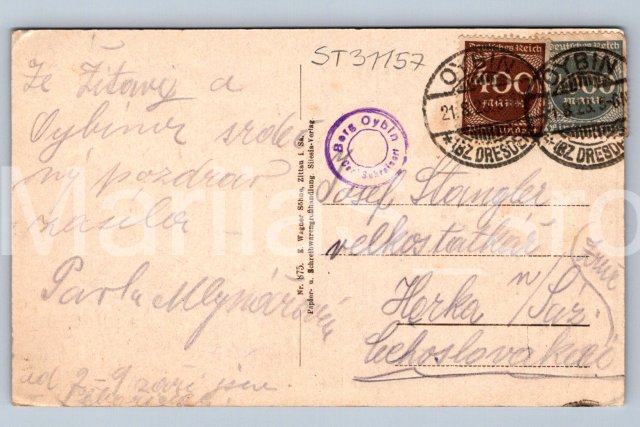 ST31157
Ze Žitavy a
Oybinor srdeč
ný pozdrav
zasílá
Pavla Mlynářová
od 2-9 září jsme
Nr. 875. E. Wagner Söhne, Zittau i. Sa.
Papier- u. Schreibwarengroßhandlung Silesia-Verlag
Deutsches Reich
400
MARK
Deutsches Reich
MARK
OYBIN
21.8.
(BZ. DRESDEN
OYBIN
(BZ. DRESDEN
Berg Oybin
Josef Stangler
velkostatkář
Herka n/Saz.
Čechoslovakei